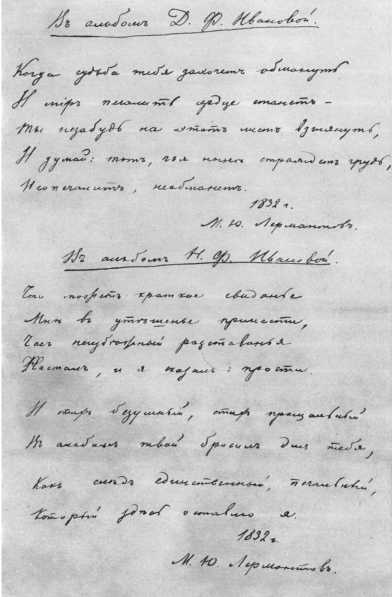 Въ альбомъ Д. Ф. Ивановой.
Когда судьба тебя захочетъ обмануть
И міръ печалить сердце станетъ –
Ты незабудь на этотъ листъ взглянуть,
И думай: тотъ, чья нынѣ страждетъ грудь,
Неопечалитъ, необманетъ.
1832 г.
М. Ю. Лермантовъ.
Въ альбомъ Н. Ф. Ивановой.
Что можетъ краткое свиданье
Мнѣ въ утѣшенье принести,
Часъ неизбѣжный разставанья
Насталъ, и я сказалъ: прости.
И стихъ безумный, стихъ прощальный
Въ альбомъ твой бросилъ для тебя,
Какъ слѣдъ единственный, печальный,
Который здѣсь оставлю я.
1832 г.
М. Ю. Лермонтовъ.